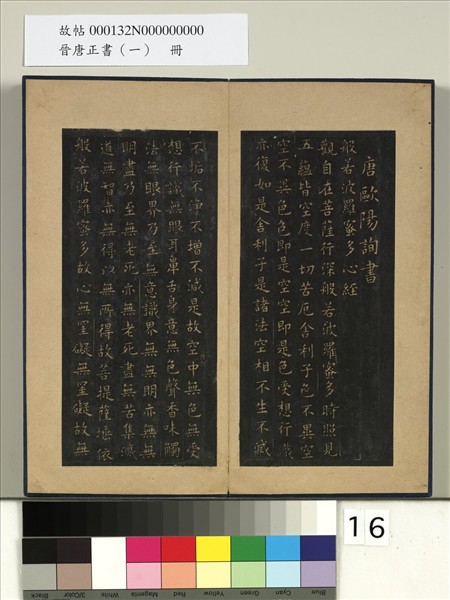 故帖 000132N000000000
晉唐正書（一）　冊
唐歐陽詢書
般若波羅蜜多心經
觀自在菩薩行深般若波羅蜜多時照見
五蘊皆空度一切苦厄舍利子色不異空
空不異色色即是空空即是色受想行識
亦復如是舍利子是諸法空相不生不滅
不垢不淨不增不減是故空中無色無受
想行識無眼耳鼻舌身意無色聲香味觸
法無眼界乃至無意識界無無明亦無無
明盡乃至無老死亦無老死盡無苦集滅
道無智亦無得以無所得故菩提薩埵依
般若波羅蜜多故心無罣礙無罣礙故無
16
Black
3/Color
White
Magenta
Red
Yellow
Green
Cyan
Blue